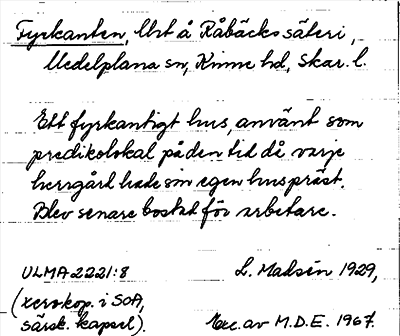 Fyrkanten, Uvt å Råbäcks säteri,
Medelplana sn, Kinne hd, Skar. l.
Ett fyrkantigt hus, använt som
predikolokal på den tid då varje
herrgård hade sin egen huspräst.
Blev senare bostad för arbetare.
ULMA 2221:8
L. Madsén 1929,
(xerokop. i SOA,
särsk. kapsel).
Exc. av M.D.E. 1967.